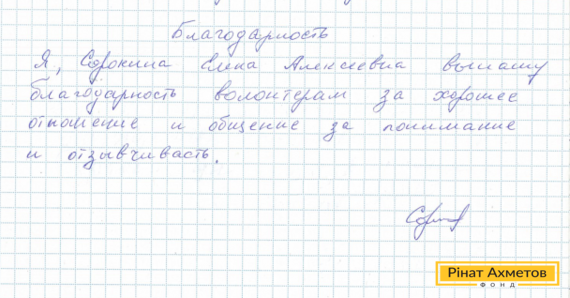 Благодарность
Я, Сорокина Елена Алексеевна выношу
благодарность волонтерам за хорошее
отношение и общение за понимание
и отзывчивасть.
Рінат Ахметов
ФОНД